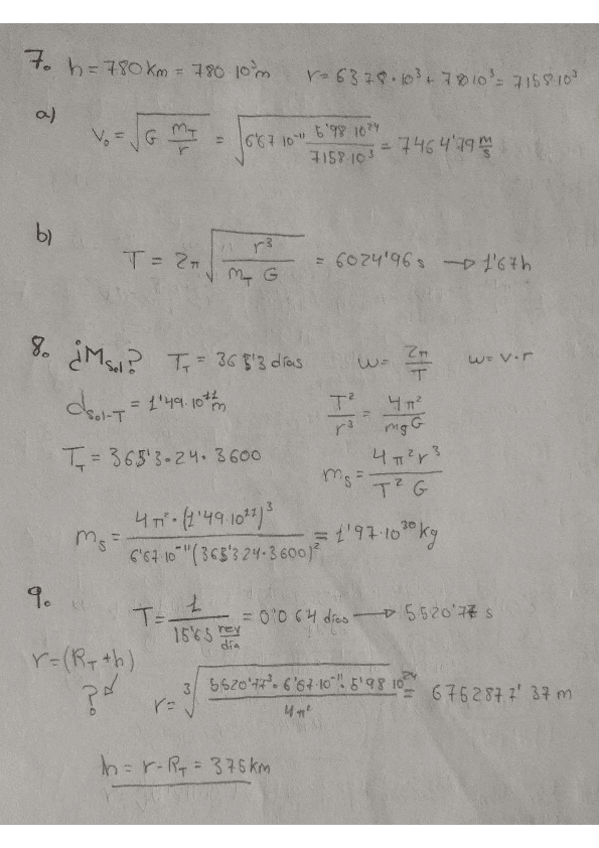 7. h = 780 km = 780 10³m r = 6378·10³ + 78010³ = 7158·10³
a)
V₀ = √(G m_T/r) = √(6'67 10⁻¹¹ 5'98 10²⁴/7158·10³) = 7464'79 m/s
b)
T = 2π √(r³/m_T G) = 6024'96 s → 1'67h
8. ¿M_Sol? T_T = 365'3 días ω = 2π/T ω = v·r
d_Sol-T = 1'49·10¹¹m T²/r³ = 4π²/mg G
T_T = 365'3·24·3600 m_s = 4π²r³/T² G
m_s = 4π²·(1'49·10¹¹)³/6'67·10⁻¹¹(365'3 24·3600)² = 1'97·10³⁰kg
9.
T = 1/15'65 rev/día = 0'064 días → 5520'77 s
r = (R_T + h)
? r = ³√(5520'77³·6'67·10⁻¹¹·5'98·10²⁴/4π²) = 6752877'37 m
h = r - R_T = 375km